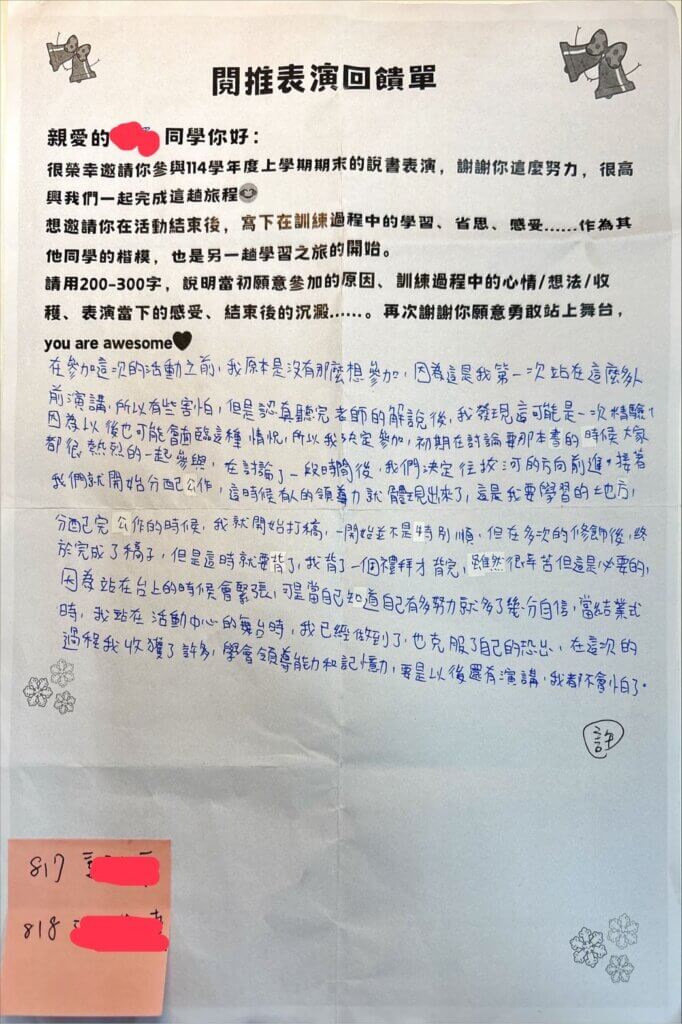 閱推表演回饋單
親愛的 同學你好：
很榮幸邀請你參與114學年度上學期期末的說書表演，謝謝你這麼努力，很高
興我們一起完成這趟旅程😊
想邀請你在活動結束後，寫下在訓練過程中的學習、省思、感受......作為其
他同學的楷模，也是另一趟學習之旅的開始。
請用200-300字，說明當初願意參加的原因、訓練過程中的心情/想法/收
穫、表演當下的感受、結束後的沉澱......。再次謝謝你願意勇敢站上舞台，
you are awesome🖤
在參加這次的活動之前，我原本是沒有那麼想參加，因為這是我第一次站在這麼多人
前演講，所以有些害怕，但是認真聽完老師的解說後，我發現這可能是一次精驗，
因為以後也可能會面臨這種情怳，所以我決定參加，初期在討論要那本書的時候大家
都很熱烈的一起參與，在討論了一段時間後，我們決定往拔河的方向前進。接著
我們就開始分配公作，這時候有人的領導力就體現出來了，這是我要學習的地方，
分配完公作的時候，我就開始打稿，一開始並不是特別順，但在多次的修飾後，終
於完成了稿子，但是這時就要背了，我背了一個禮拜才背完，雖然很辛苦但這是必要的，
因為站在台上的時候會緊張，可是當自己知道自己有多努力就多了幾分自信，當結業式
時，我站在活動中心的舞台時，我已經做到了，也克服了自己的恐出，在這次的
過程我收獲了許多，學會領導能力和記憶力，要是以後還有演講，我都不會怕了。
許
817
818